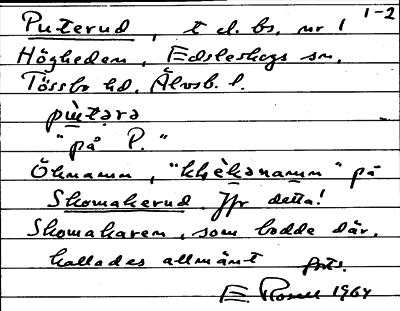 1-2
Puterud, t d. bs. nr 1
Högheden, Edsleskogs sn.
Tössbo hd. Älvsb. l.
pɯ̀tərə
"på P."
Öknamn, "khèkənamn" på
Skomakerud. Jfr detta!
Skomakaren, som bodde där,
kallades allmänt forts.
E. Rosell 1964